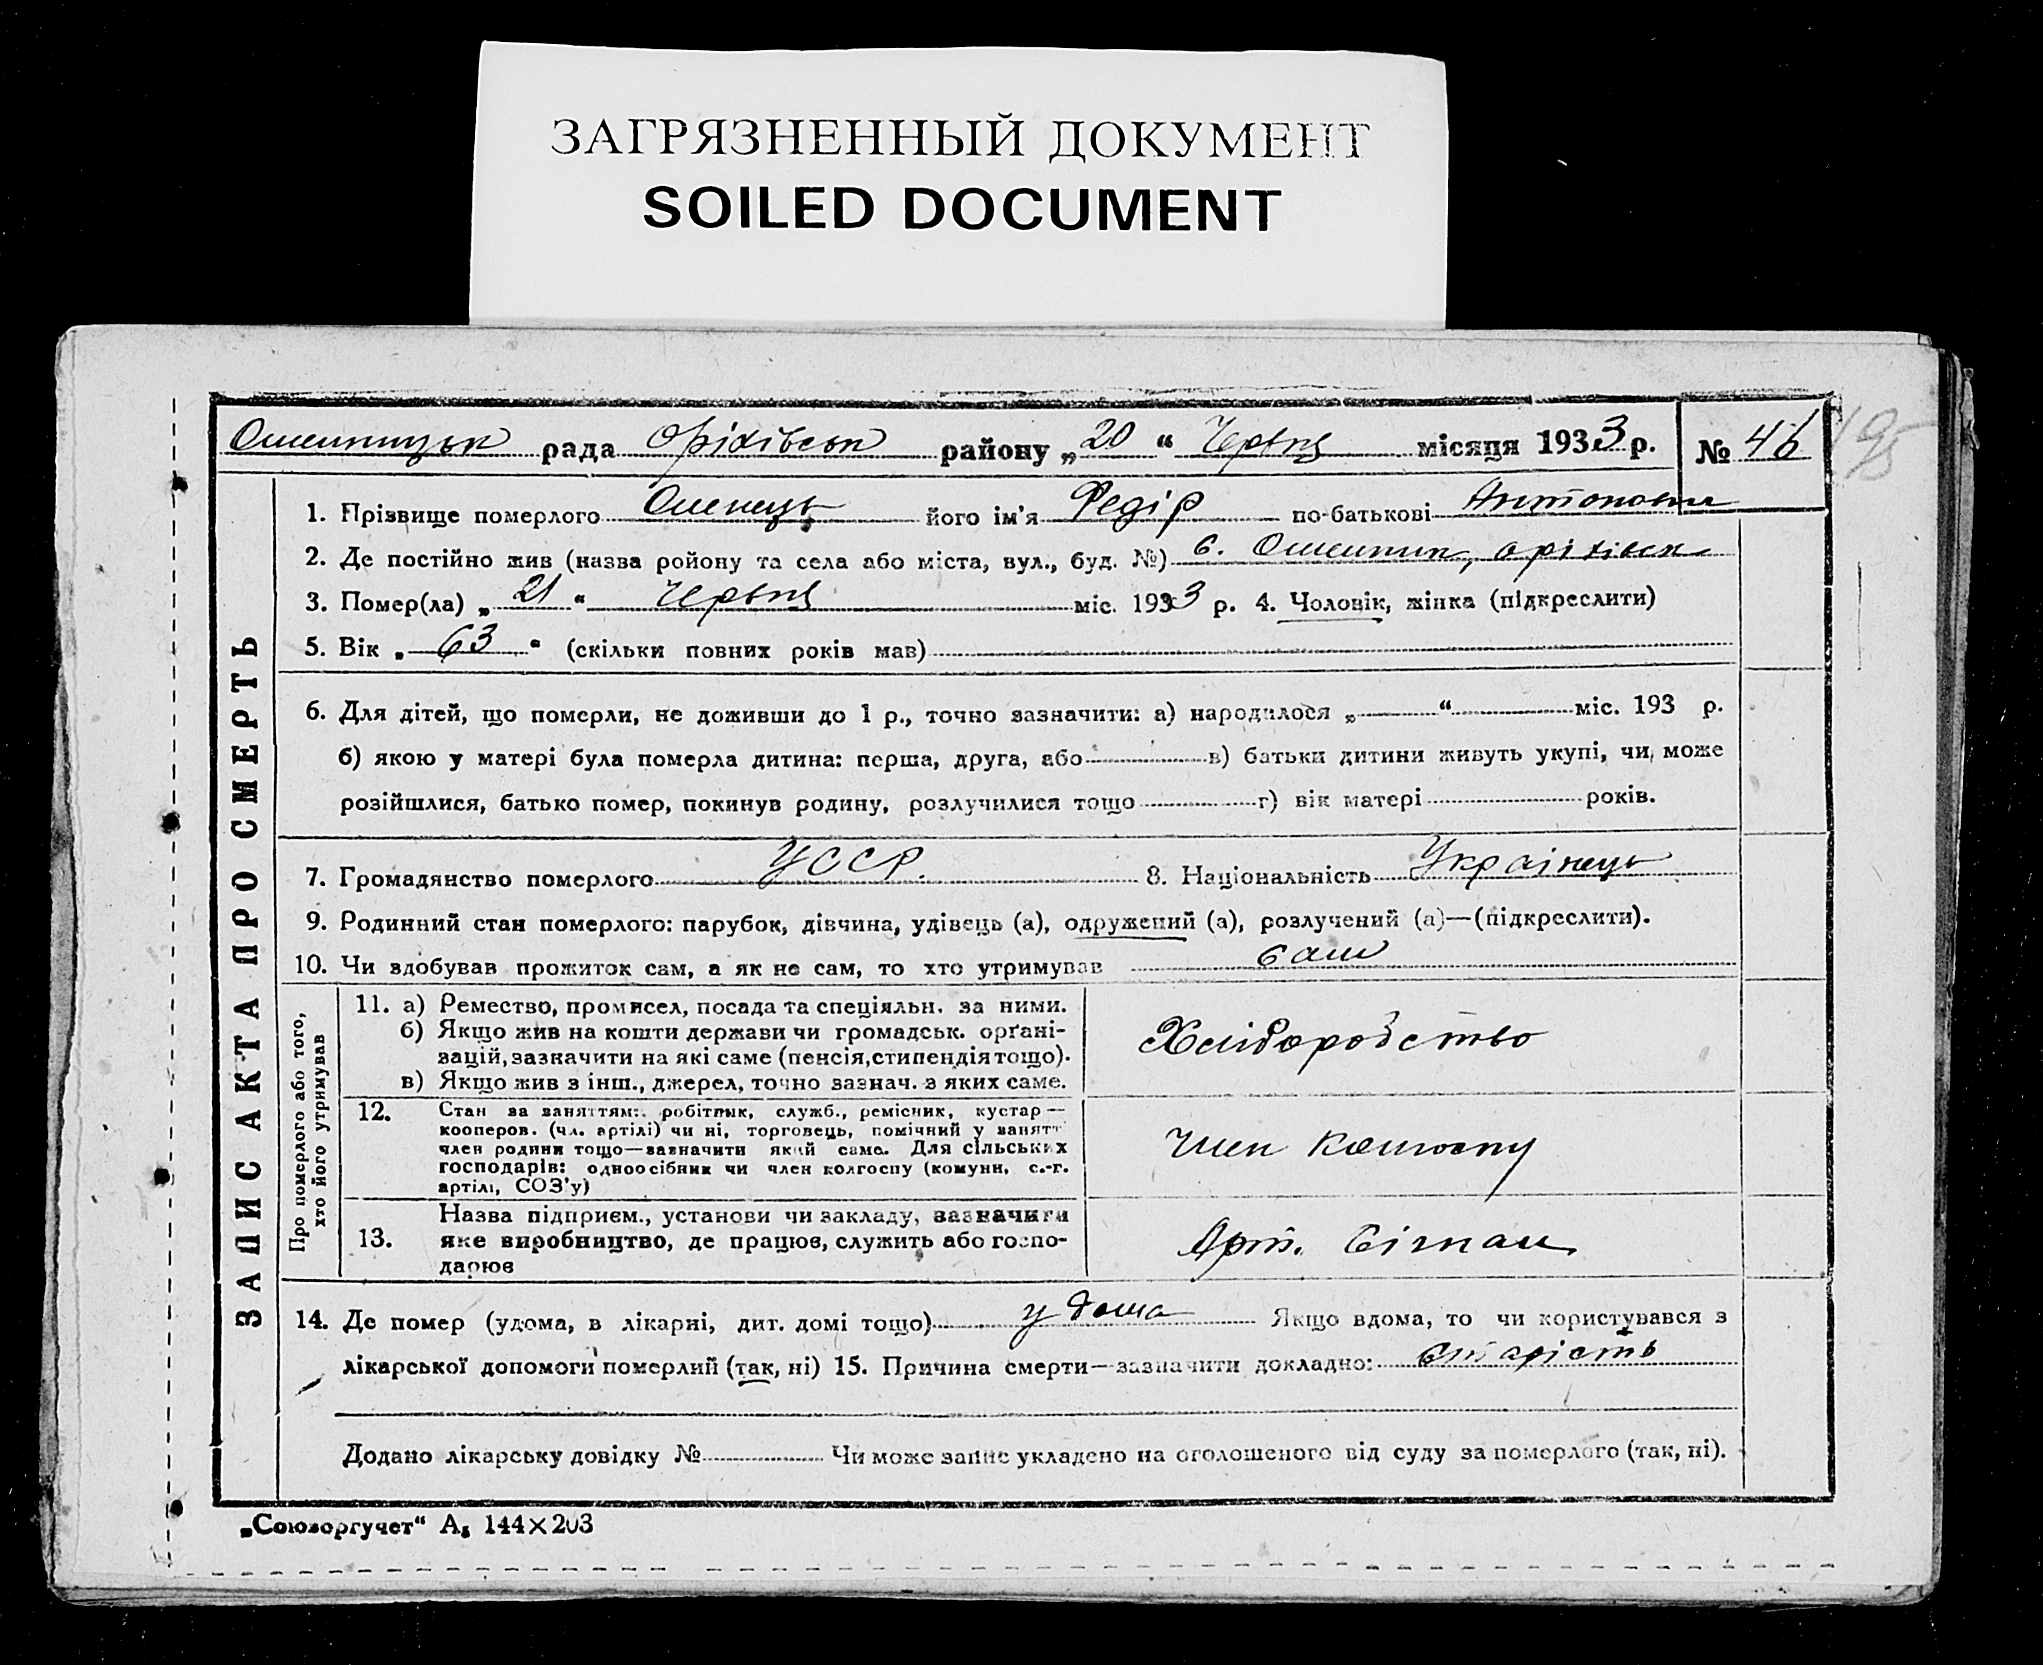 ЗАГРЯЗНЕННЫЙ ДОКУМЕНТ
SOILED DOCUMENT
рада Оріхівськ району „20“ Червня місяця 1933 р. № 46
195
ЗАПИС АКТА ПРО СМЕРТЬ
1. Прізвище померлого його ім'я Федір по-батькові Антонович
2. Де постійно жив (назва ройону та села або міста, вул., буд. №) с. оріхівск
3. Помер(ла) „21“ Червня міс. 1933 р. 4. Чоловік, жінка (підкреслити)
5. Вік „63“ (скільки повних років мав)
6. Для дітей, що померли, не доживши до 1 р., точно зазначити: а) народилося „ “ міс. 193 р.
б) якою у матері була померла дитина: перша, друга, або в) батьки дитини живуть укупі, чи може
розійшлися, батько помер, покинув родину, розлучилися тощо г) вік матері років.
7. Громадянство померлого УССР. 8. Національність Українець
9. Родинний стан померлого: парубок, дівчина, удівець (а), одружений (а), розлучений (а)—(підкреслити).
10. Чи здобував прожиток сам, а як не сам, то хто утримував сам
Про померлого або того,
хто його утримував
11. а) Ремество, промисел, посада та спеціяльн. за ними.
б) Якщо жив на кошти держави чи громадськ. орґані-
зацій, зазначити на які саме (пенсія, стипендія тощо).
в) Якщо жив з інш., джерел, точно зазнач. з яких саме.
Хліборобство
12. Стан за заняттям: робітник, служб., ремісник, кустар —
кооперов. (чл. артілі) чи ні, торговець, помічний у занятт
член родини тощо—зазначити який саме. Для сільських
господарів: одноосібник чи член колгоспу (комуни, с.-г.
артілі, СОЗ'у)
Член колгоспу
Назва підприєм., установи чи закладу, зазначити
13. яке виробництво, де працює, служить або госпо-
дарює
Арт. Сігнал
14. Де помер (удома, в лікарні, дит. домі тощо) у дома Якщо вдома, то чи користувався з
лікарської допомоги померлий (так, ні) 15. Причина смерти—зазначити докладно: старість
Додано лікарську довідку № Чи може запис укладено на оголошеного від суду за померлого (так, ні).
„Союзоргучет“ А₅ 144×203